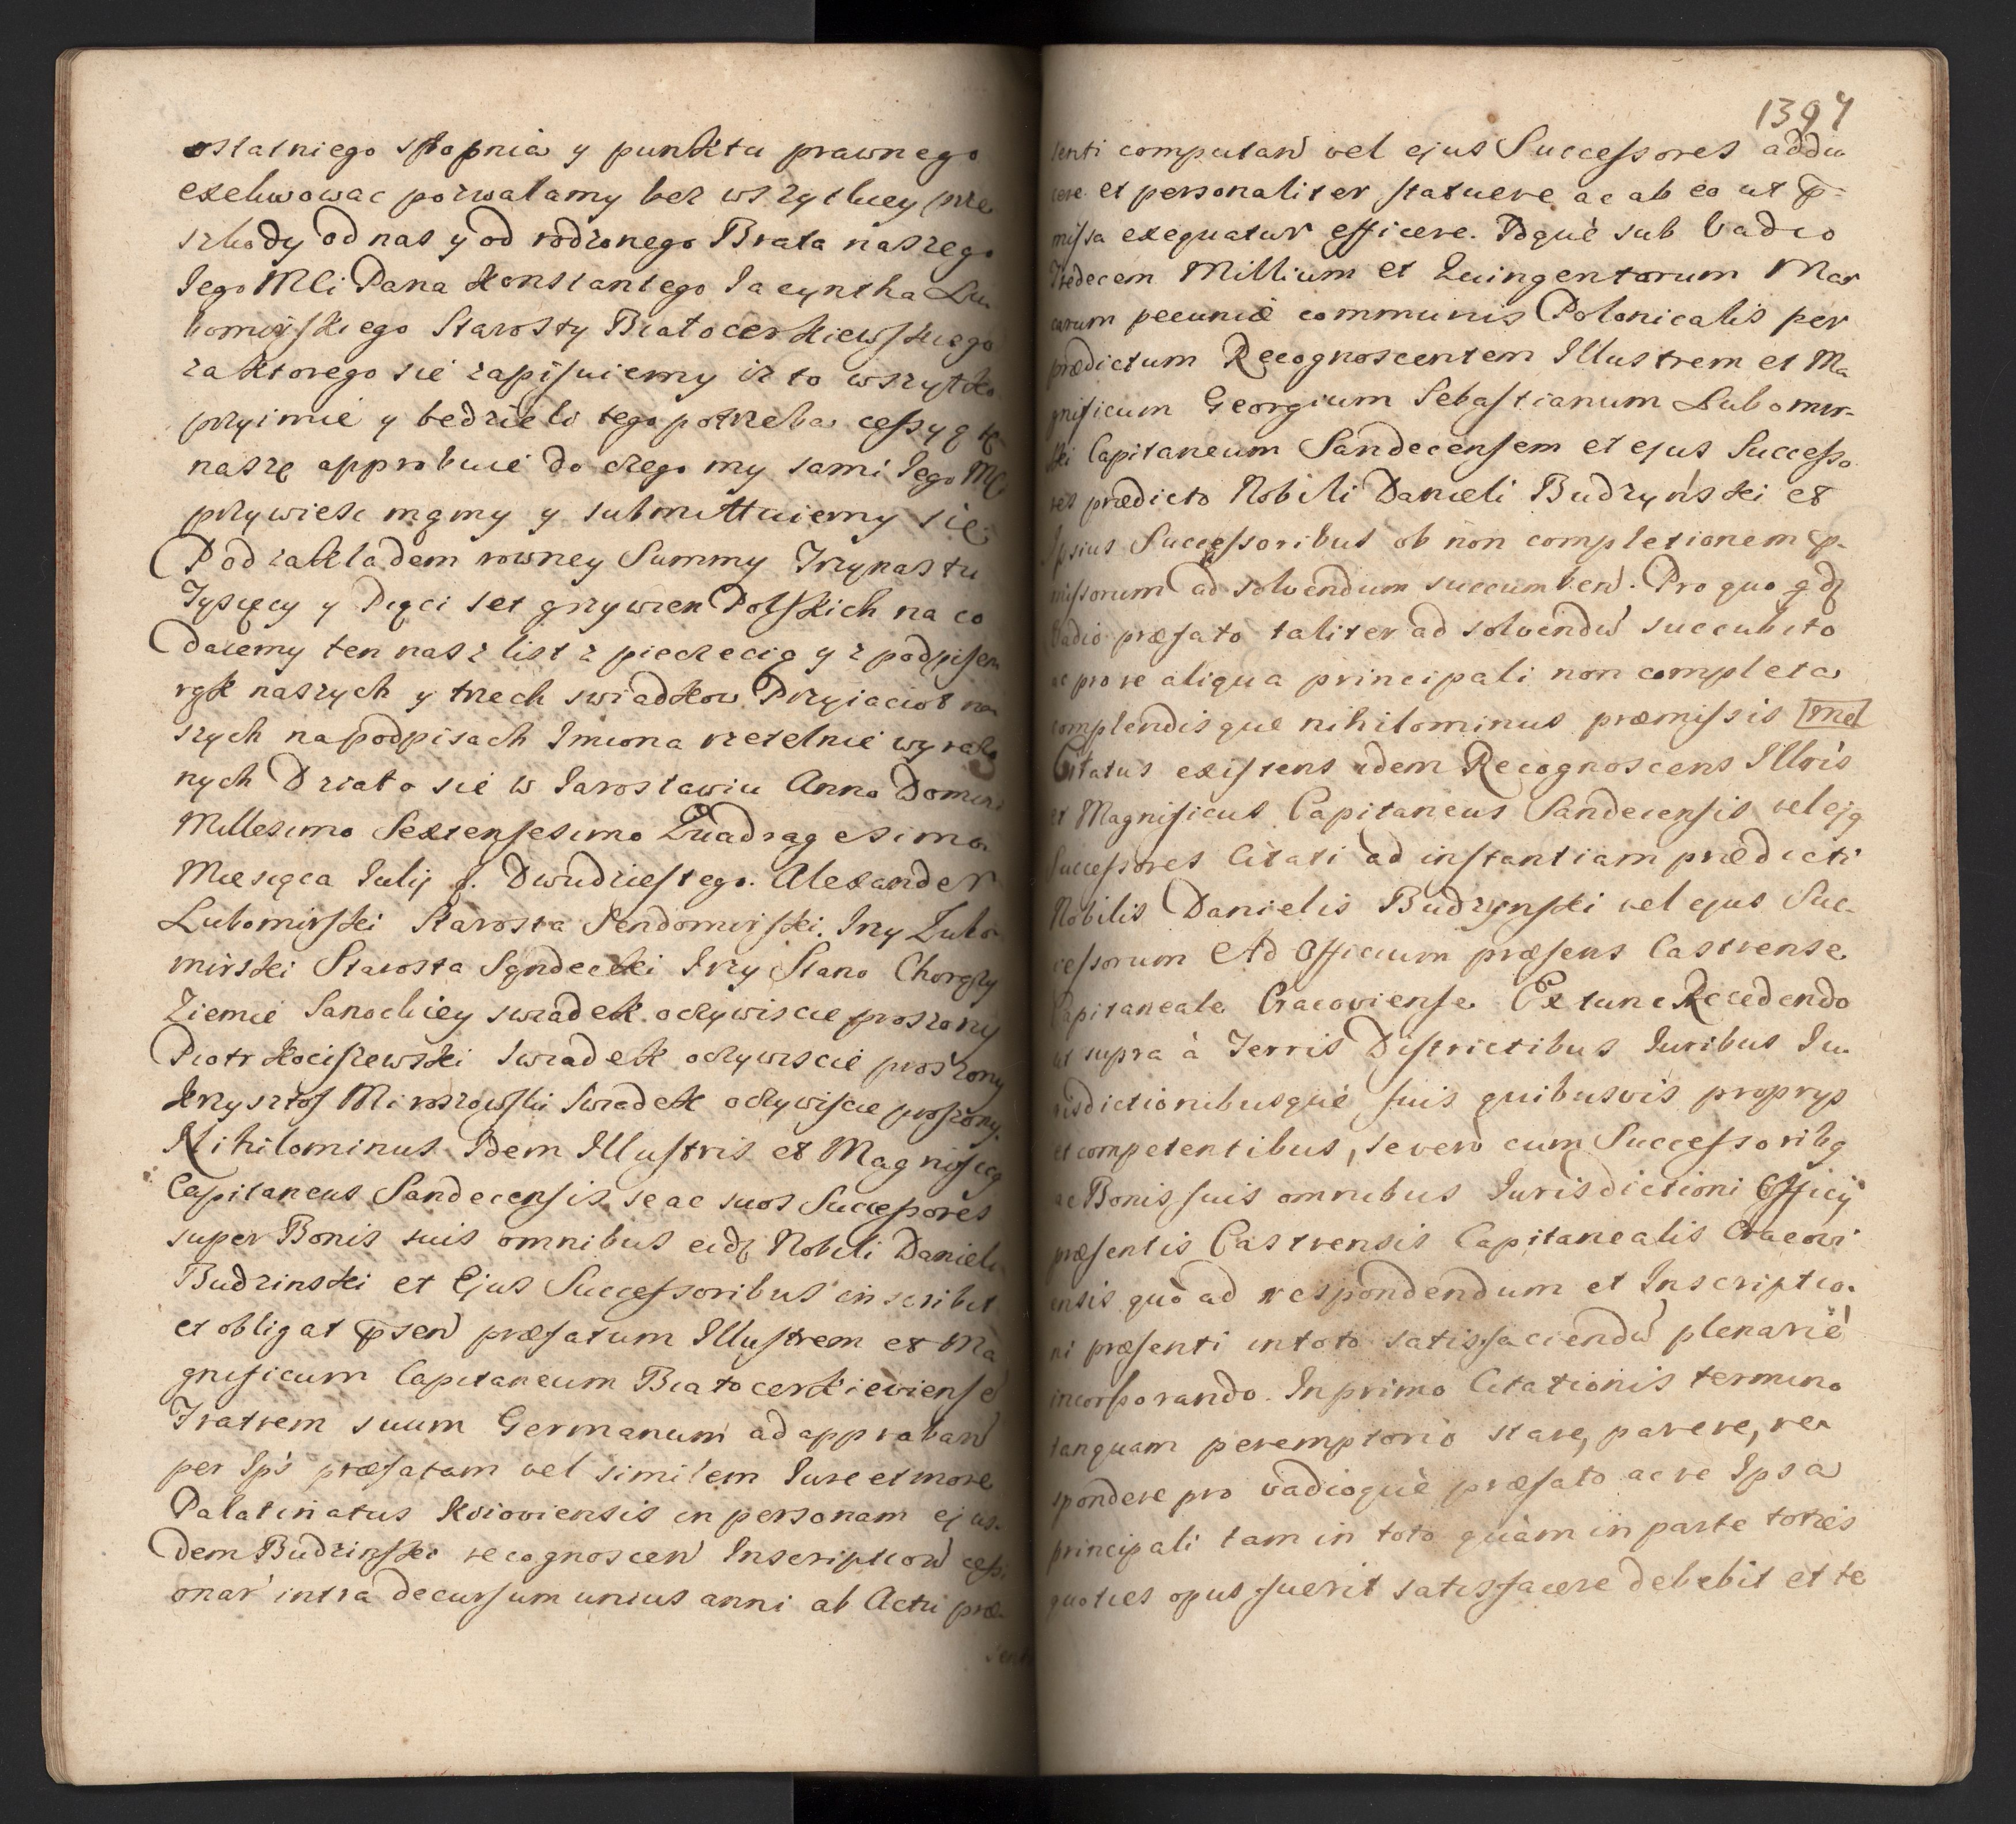 ostatniego stopnia y punktu prawnego
exekwowac pozwalamy bez wszytkiey prze
szkody od nas y od rodzonego Brata naszego
Jego Mci Pana Konstantego Jacyntha Lu
bomirskiego Starosty Białocerkiewskiego
za ktorego sie zapisuiemy iz to wszytko
przyimie y bedzieli tego potrzeba cessyą tę
naszę approbuie do czego my sami Jego Mci
przywiesc mamy y submittuiemy się
Pod zakładem rowney Summy Trzynastu
Tysięcy y Pięci set grzywien Polskich na co
Daiemy ten nasz list z pieczecią y z podpisem
rąk naszych y trzech swiadkow Przyiacioł na
szych na podpisach Imiona rzetelnie wyrażo
nych Działo sie w Jarosławiu Anno Domini
Millesimo Sexcensesimo Quadragesimo
Miesiąca Julij d. Dwudziestego. Alexander
Lubomirski Starosta Sendomirski. Jrzy Lubo
mirski Starosta Sąndecki Jrzy Stano Chorąży
Ziemie Sanockiey swiadek oczywiscie proszony
Piotr Kociszewski swiadek oczywiscie proszony
Krzysztof Miroszowski swiadek oczywiscie proszony.
Nihilominus Idem Illustris et Magnificq
Capitaneus Sandecensis se ac suos Successores
super Bonis suis omnibus eidz Nobili Danieli
Budzinski et Ejus Successoribus inscribit
et obligat psen præfatum Illustrem et Ma
gnificum Capitaneum Białocerkieviense
Fratrem suum Germanum ad approban
per Ips præfatam vel similem Jure et more
Palatinatus Kijoviensis in personam ejus-
dem Budzinski recognoscen Inscription cessi
onar intra decursum unius anni ab Actu præ-
senti
1397
senti computan vel ejus Successores addu
cere et personaliter statuere ac ab eo ut p-
missa exequatur efficere. Idquè sub Vadio
Tredecem Millium et Quingentorum Mar
carum pecuniæ communis Polonicalis per
prædictum Recognoscentem Illustrem et Ma
gnificum Georgium Sebastianum Lubomir-
ski Capitaneum Sandecensem et ejus Successo
res prædicto Nobili Danieli Budzyński et
Ipsius Successoribus ob non completionem p-
missorum ad solvendum succumben. Pro quo qdz
Vadio præfato taliter ad solvendũ succubito
ac pro re aliqua principali non completa
complendisque nihilominus præmissis
Citatus existens idem Recognoscens Illris
et Magnificus Capitaneus Sandecensis vel ejq
Successores Citati ad instantiam prædicti
Nobilis Danielis Budzynski vel ejus Suc-
cessorum Ad Officium præsens Castrense
Capitaneale Cracoviense Ex tunc Recedendo
ut supra à Terris Districtibus Juribus Ju
risdictionibusquè suis quibusvis proprys
et competentibus, se vero cum Successoribq
ac Bonis suis omnibus Jurisdictioni Officij
præsentis Castrensis Capitanealis Cracovi
ensis quò ad respondendum et Inscriptio-
ni præsenti in toto satisfaciendũ plenariè
incorporando. In primo Citationis termino
tanquam peremptorio stare, parere, re-
spondere pro vadioquè præfato ac re Ipsa
principali tam in toto quàm in parte toties
quoties opus fuerit satisfacere debebit et te